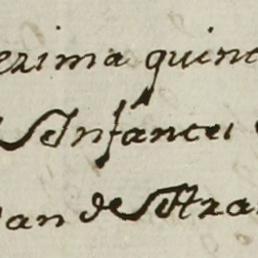 ezima quinc
Infancei
an de Stra